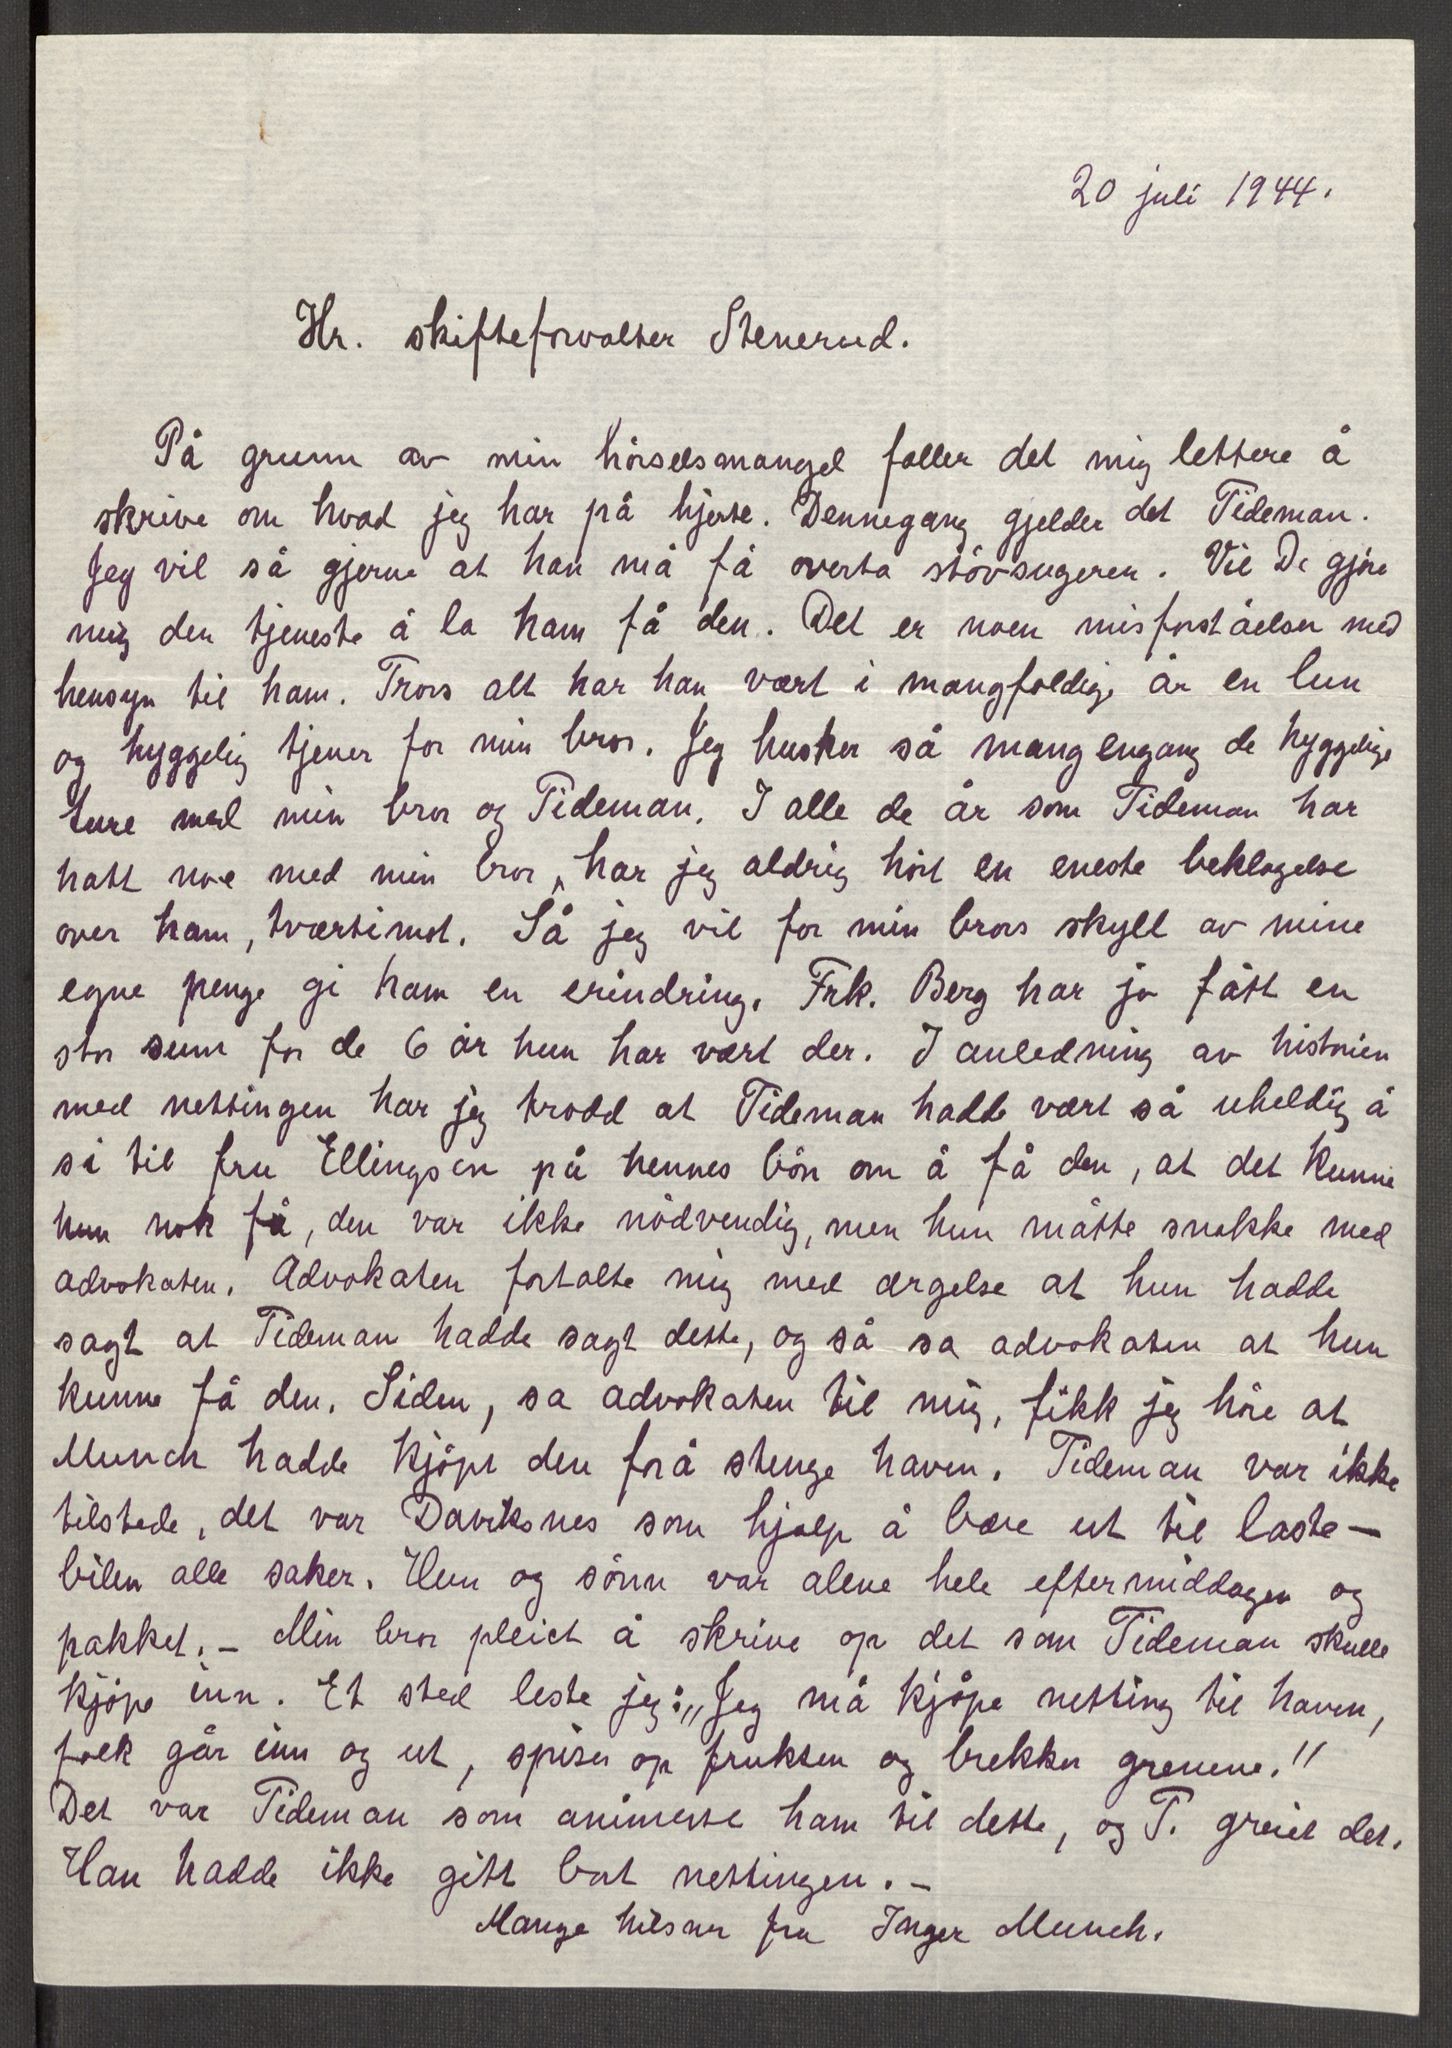 20 juli 1944.
Hr. skifteforvalter Stenerud.
På grunn av min hörselsmangel faller det mig lettere å
skrive om hvad jeg har på hjerte. Dennegang gjelder det Tideman.
Jeg vil så gjerne at han må få overta stövsugeren. Vil De gjöre
mig den tjeneste å la ham få den. Det er noen misforståelser med
hensyn til ham. Tross alt har han vært i mangfoldige år en lun
og hyggelig tjener for min bror. Jeg husker så mang engang de hyggelige
ture med min bror og Tideman. I alle de år som Tideman har
hatt noe med min bror, har jeg aldrig hört en eneste beklagelse
over ham, tværtimot. Så jeg vil for min brors skyll av mine
egne penge gi ham en erindring. Frk. Berg har jo fått en
stor sum for de 6 år hun har vært der. I anledning av historien
med nettingen har jeg trodd at Tideman hadde vært så uheldig å
si til fru Ellingsen på hennes bön om å få den, at det kunne
hun nok få, den var ikke nödvendig, men hun måtte snakke med
advokaten. Advokaten fortalte mig med ærgelse at hun hadde
sagt at Tideman hadde sagt dette, og så sa advokaten at hun
kunne få den. Siden, sa advokaten til mig, fikk jeg höre at
Munch hadde kjöpt den forå stenge haven. Tideman var ikke
tilstede, det var Daviksnes som hjalp å bære ut til laste-
bilen alle saker. Hun og sönn var alene hele eftermiddagen og
pakket. - Min bror pleiet å skrive op det som Tideman skulle
kjöpe inn. Et sted leste jeg: „Jeg må kjöpe netting til haven,
folk går inn og ut, spiser op frukten og brekker grenene."
Det var Tideman som animerte ham til dette, og T. greiet det.
Han hadde ikke gitt bort nettingen. -
Mange hilsner fra Inger Munch.